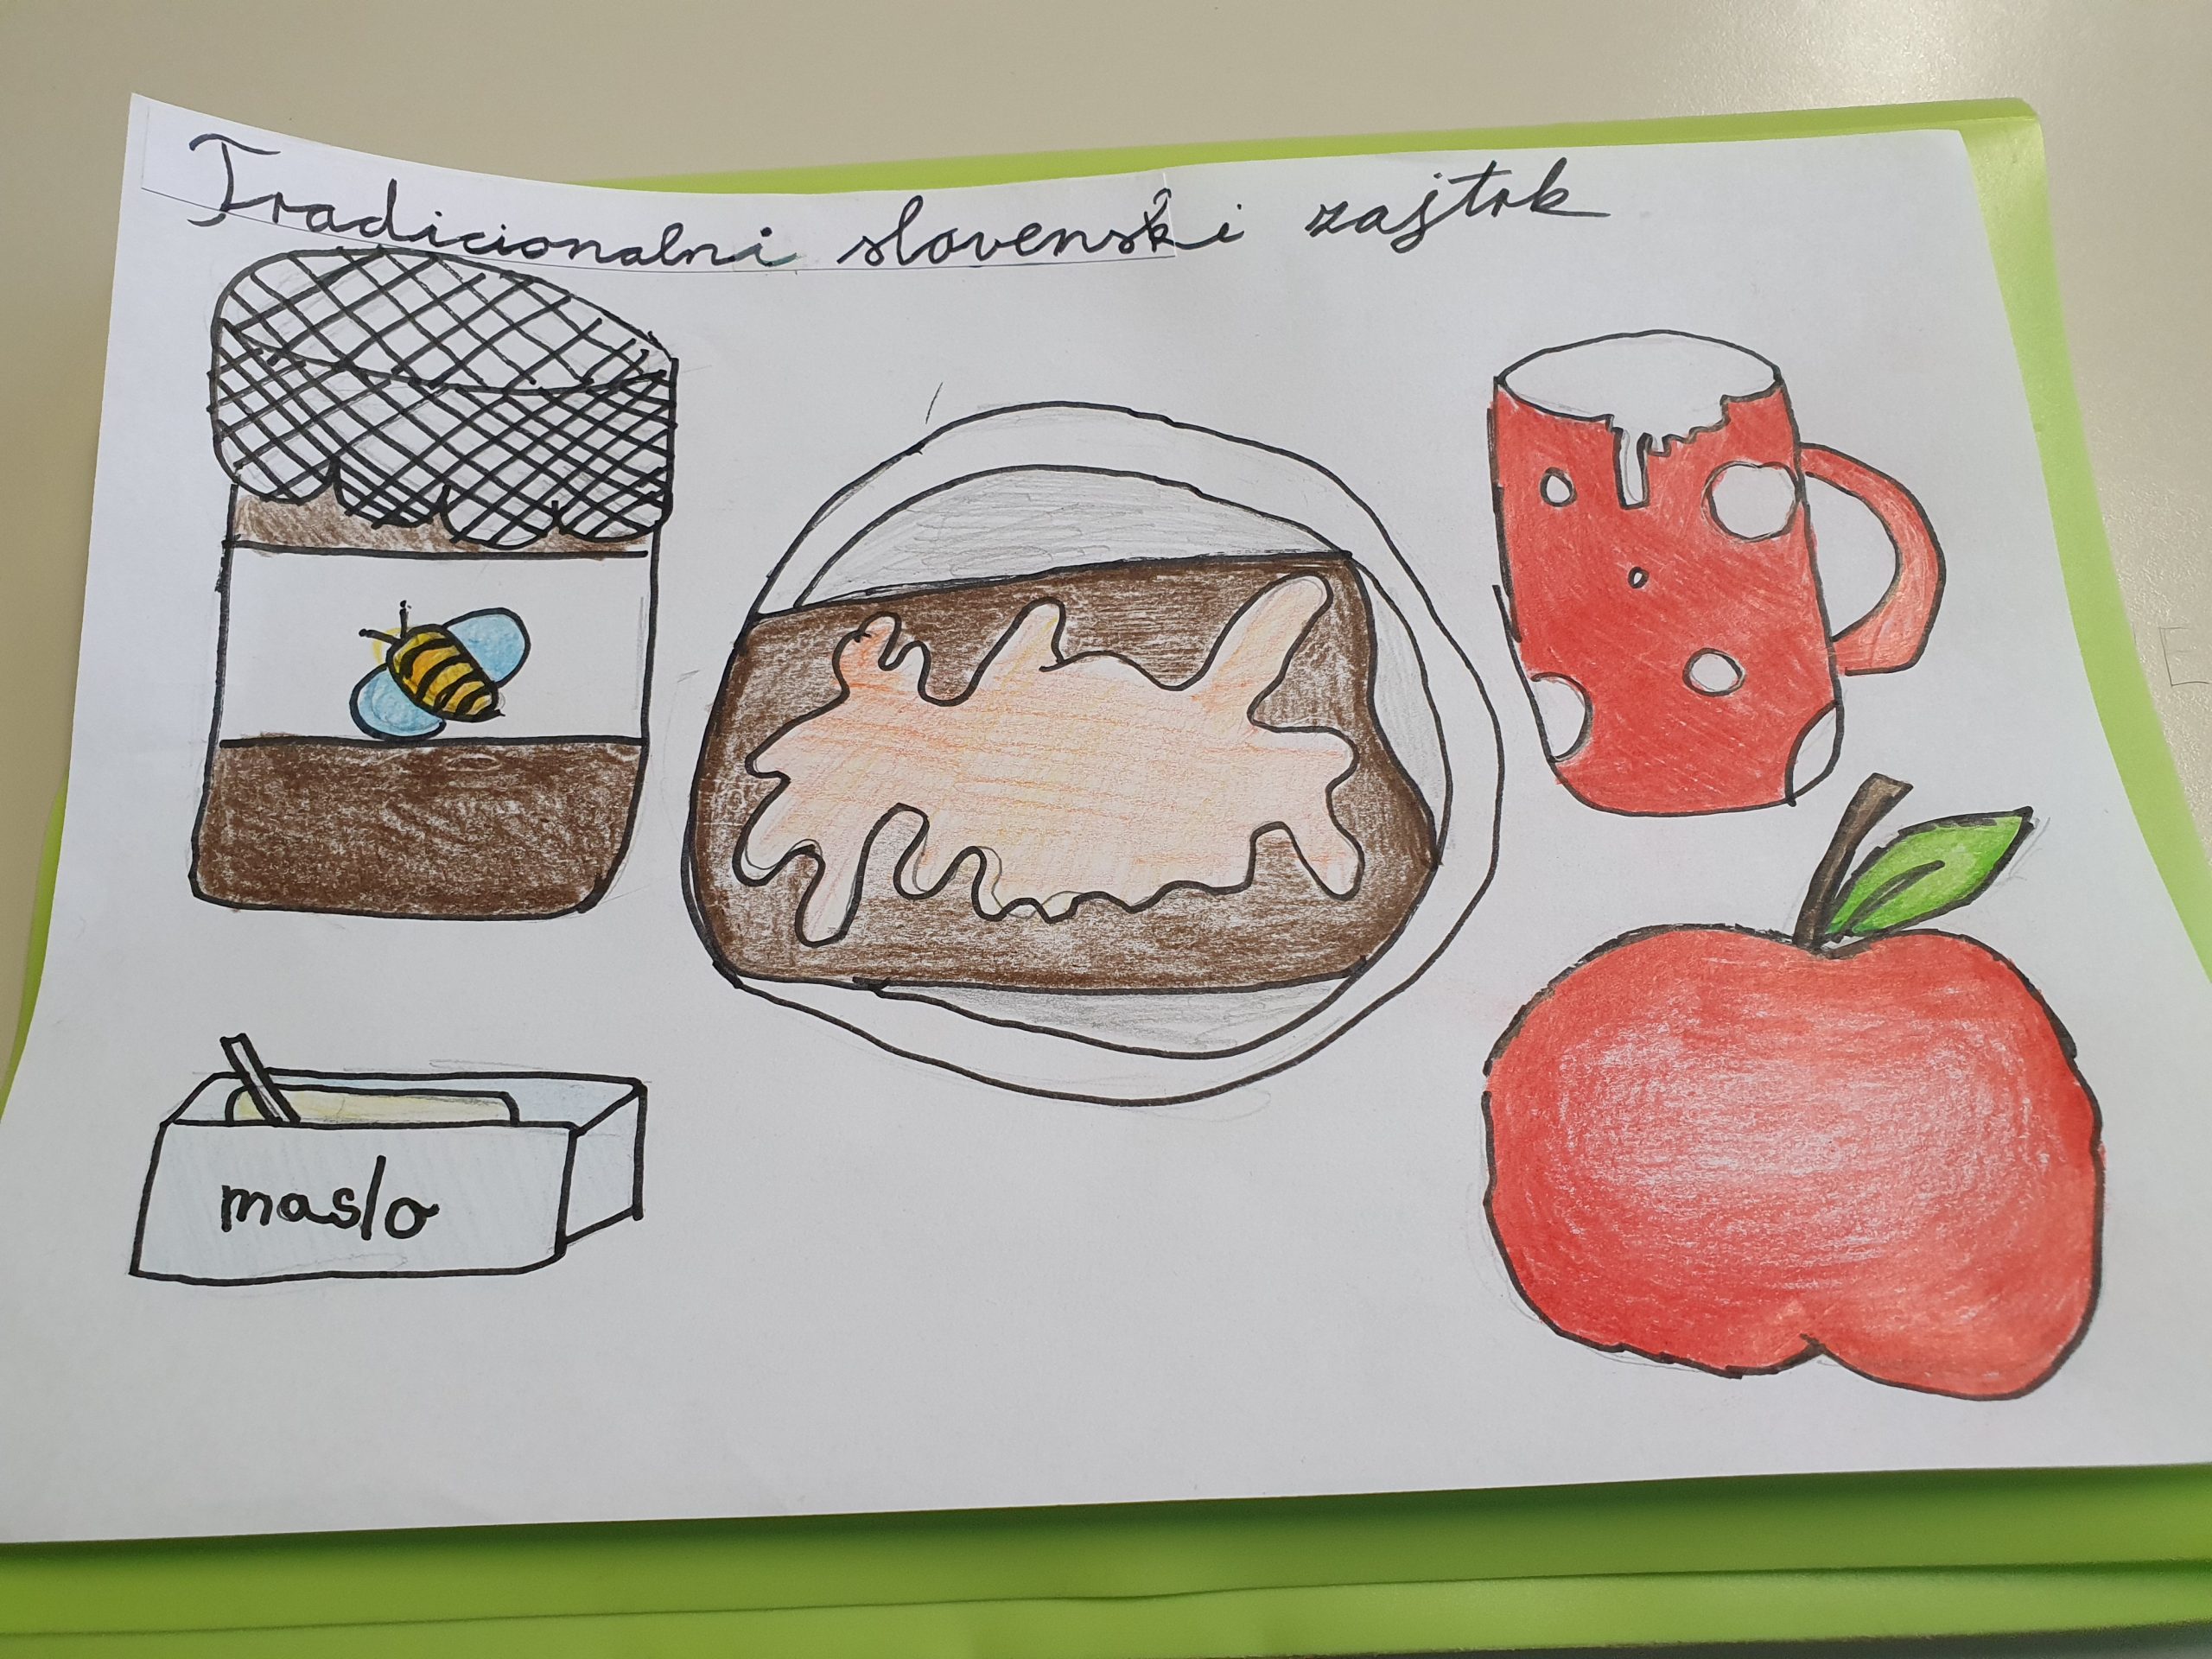 Tradicionalni slovenski zajtrk
maslo